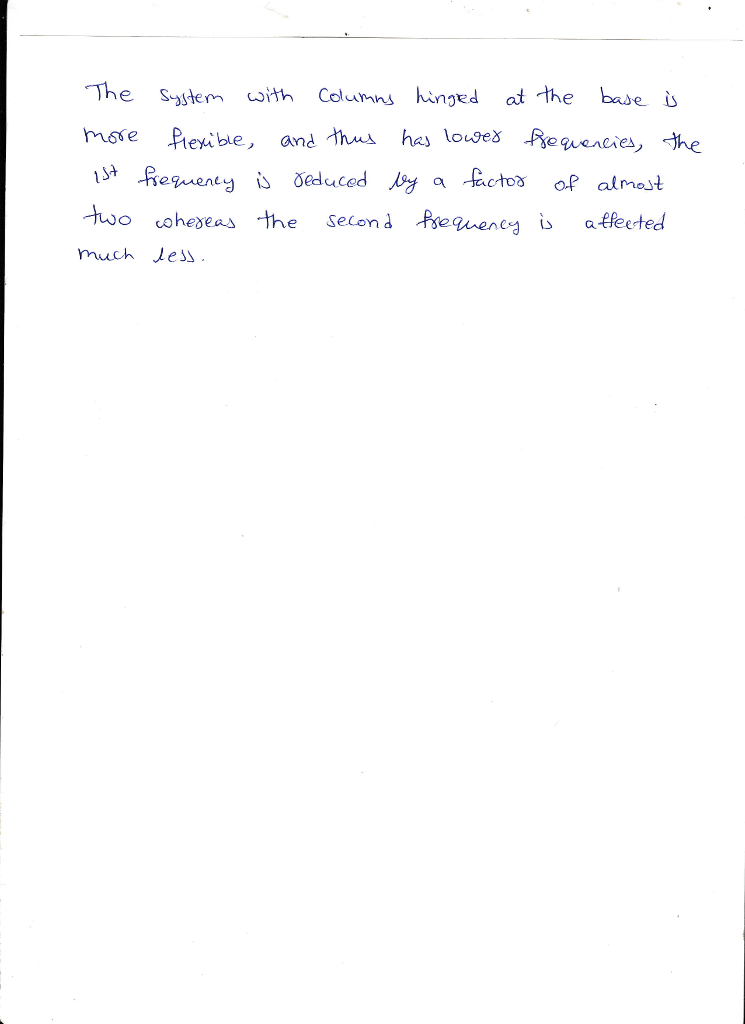 The system with columns hinged at the base is
more flexible, and thus has lower frequencies, the
1st frequency is reduced by a factor of almost
two whereas the second frequency is affected
much less.